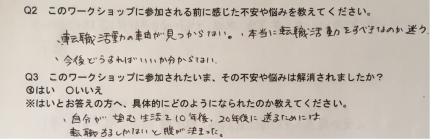 Q2　このワークショップに参加される前に感じた不安や悩みを教えてください。
・転職活動の軸が見つからない。・本当に転職活動をすべきなのか迷う
・今後どうすればいいか分からない
Q3　このワークショップに参加されたいま、その不安や悩みは解消されましたか？
⑤はい　○いいえ
※はいとお答えの方へ、具体的にどのようになられたのか教えてください。
・自分が望む生活を10年後、20年後に送るためには
転職するしかないと腹が決まった。